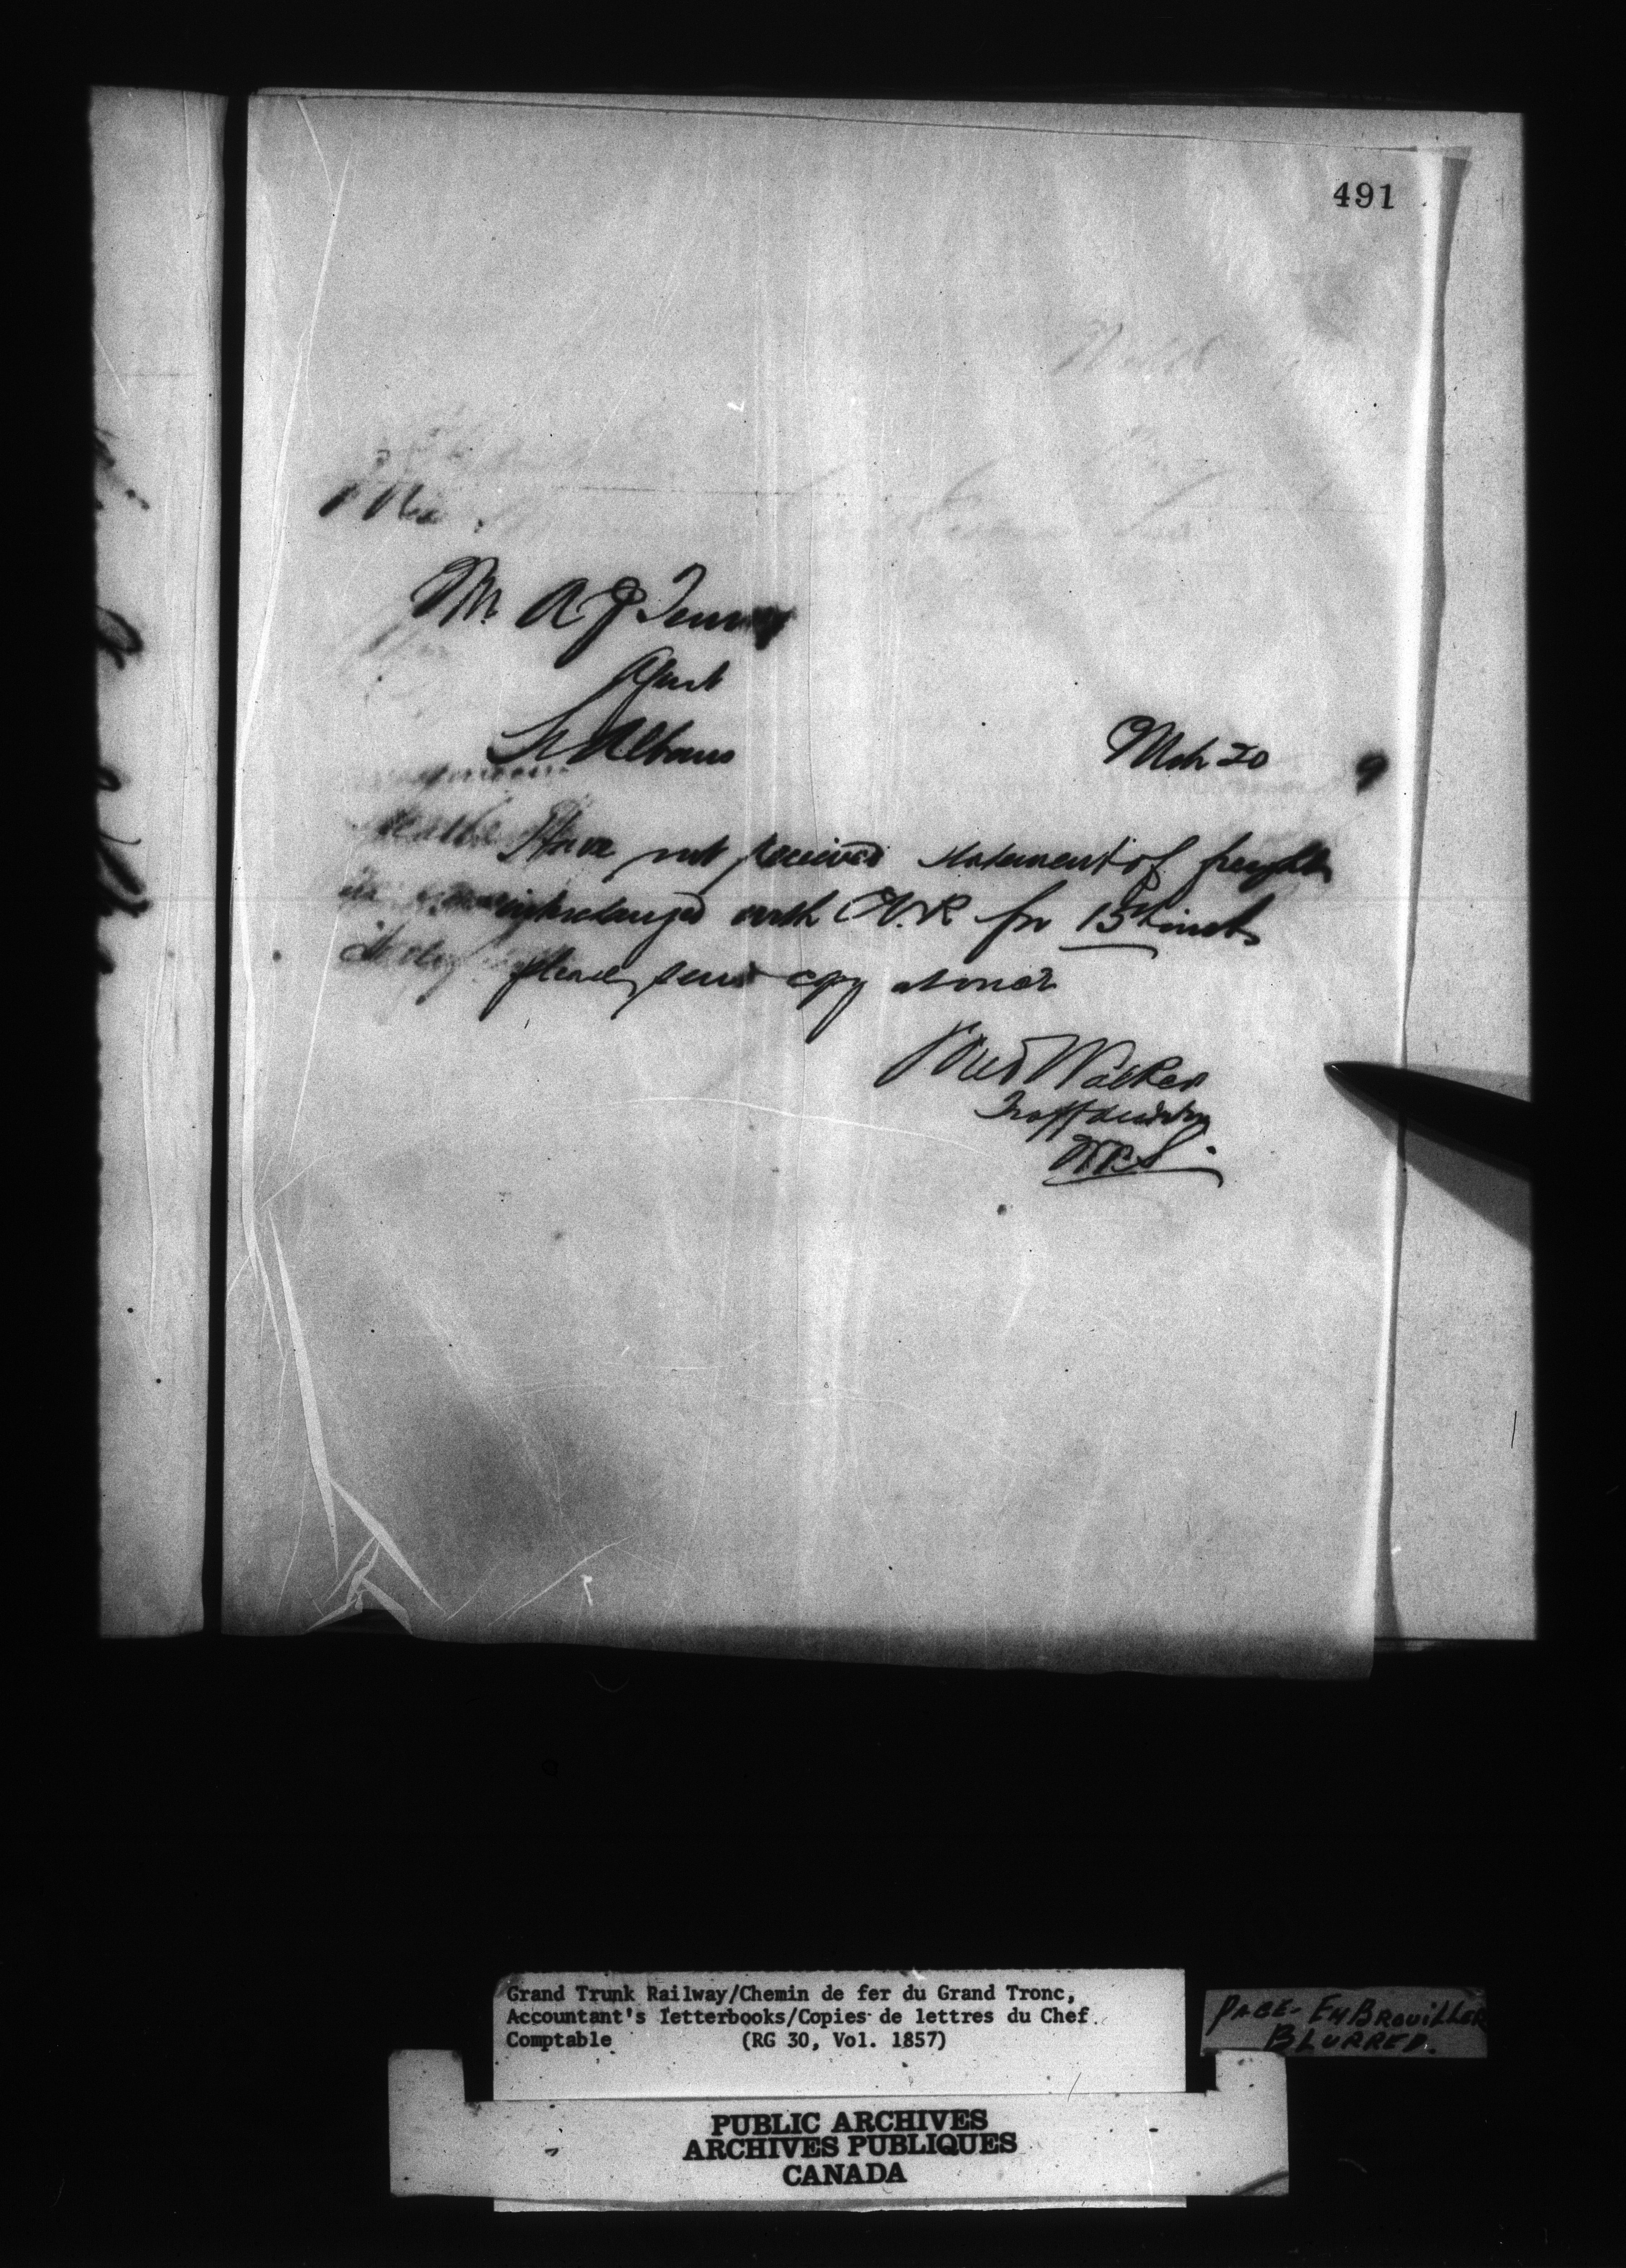 491
Mr. A J
Agent
St Albans
Mch 20 9
Have not received statement of freight
interchanged with C.V.R for 15th inst
please send copy at once
Walker
Grand Trunk Railway/Chemin de fer du Grand Tronc,
Accountant's letterbooks/Copies de lettres du Chef
Comptable (RG 30, Vol. 1857)
PAGE- EMBROUILLER
BLURRED.
PUBLIC ARCHIVES
ARCHIVES PUBLIQUES
CANADA